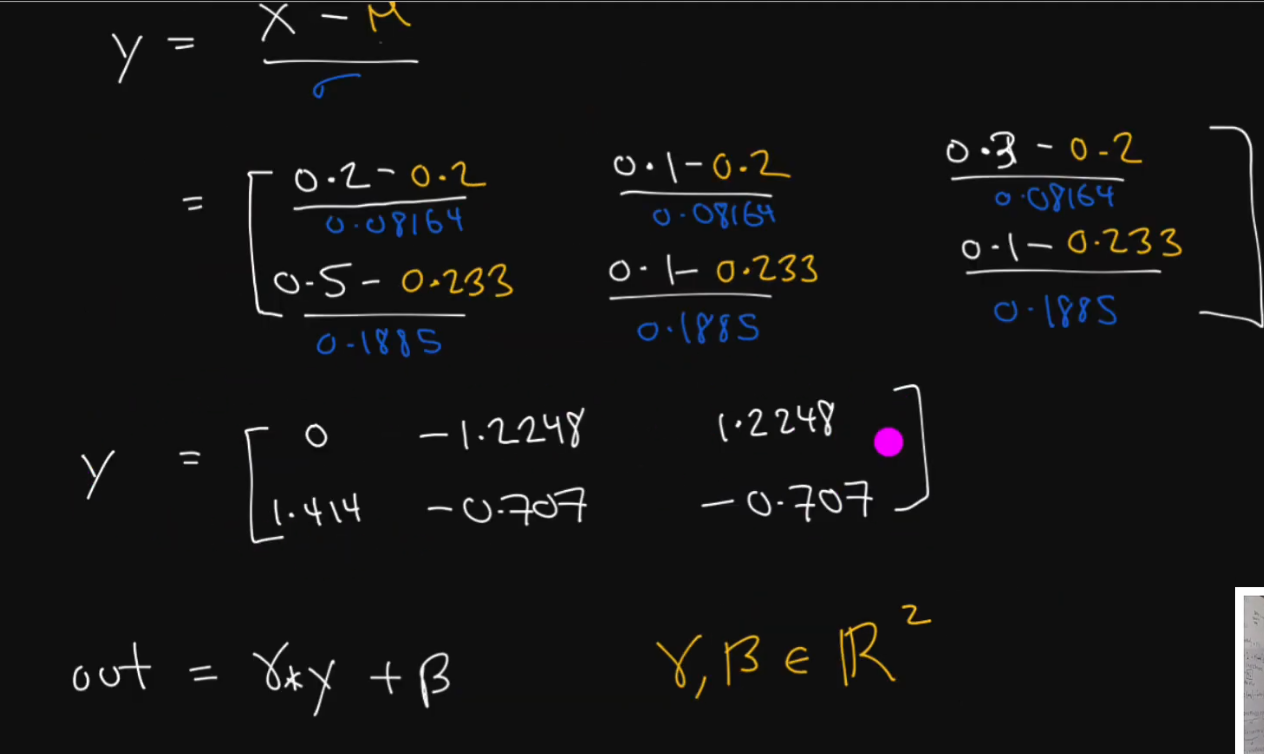 y = X - μ
σ
= [ 0.2 - 0.2 0.1 - 0.2 0.3 - 0.2 ]
0.08164 0.08164 0.08164
0.5 - 0.233 0.1 - 0.233 0.1 - 0.233
0.1885 0.1885 0.1885
y = [ 0 -1.2248 1.2248 ]
1.414 -0.707 -0.707
out = γ * y + β γ, β ∈ ℝ²